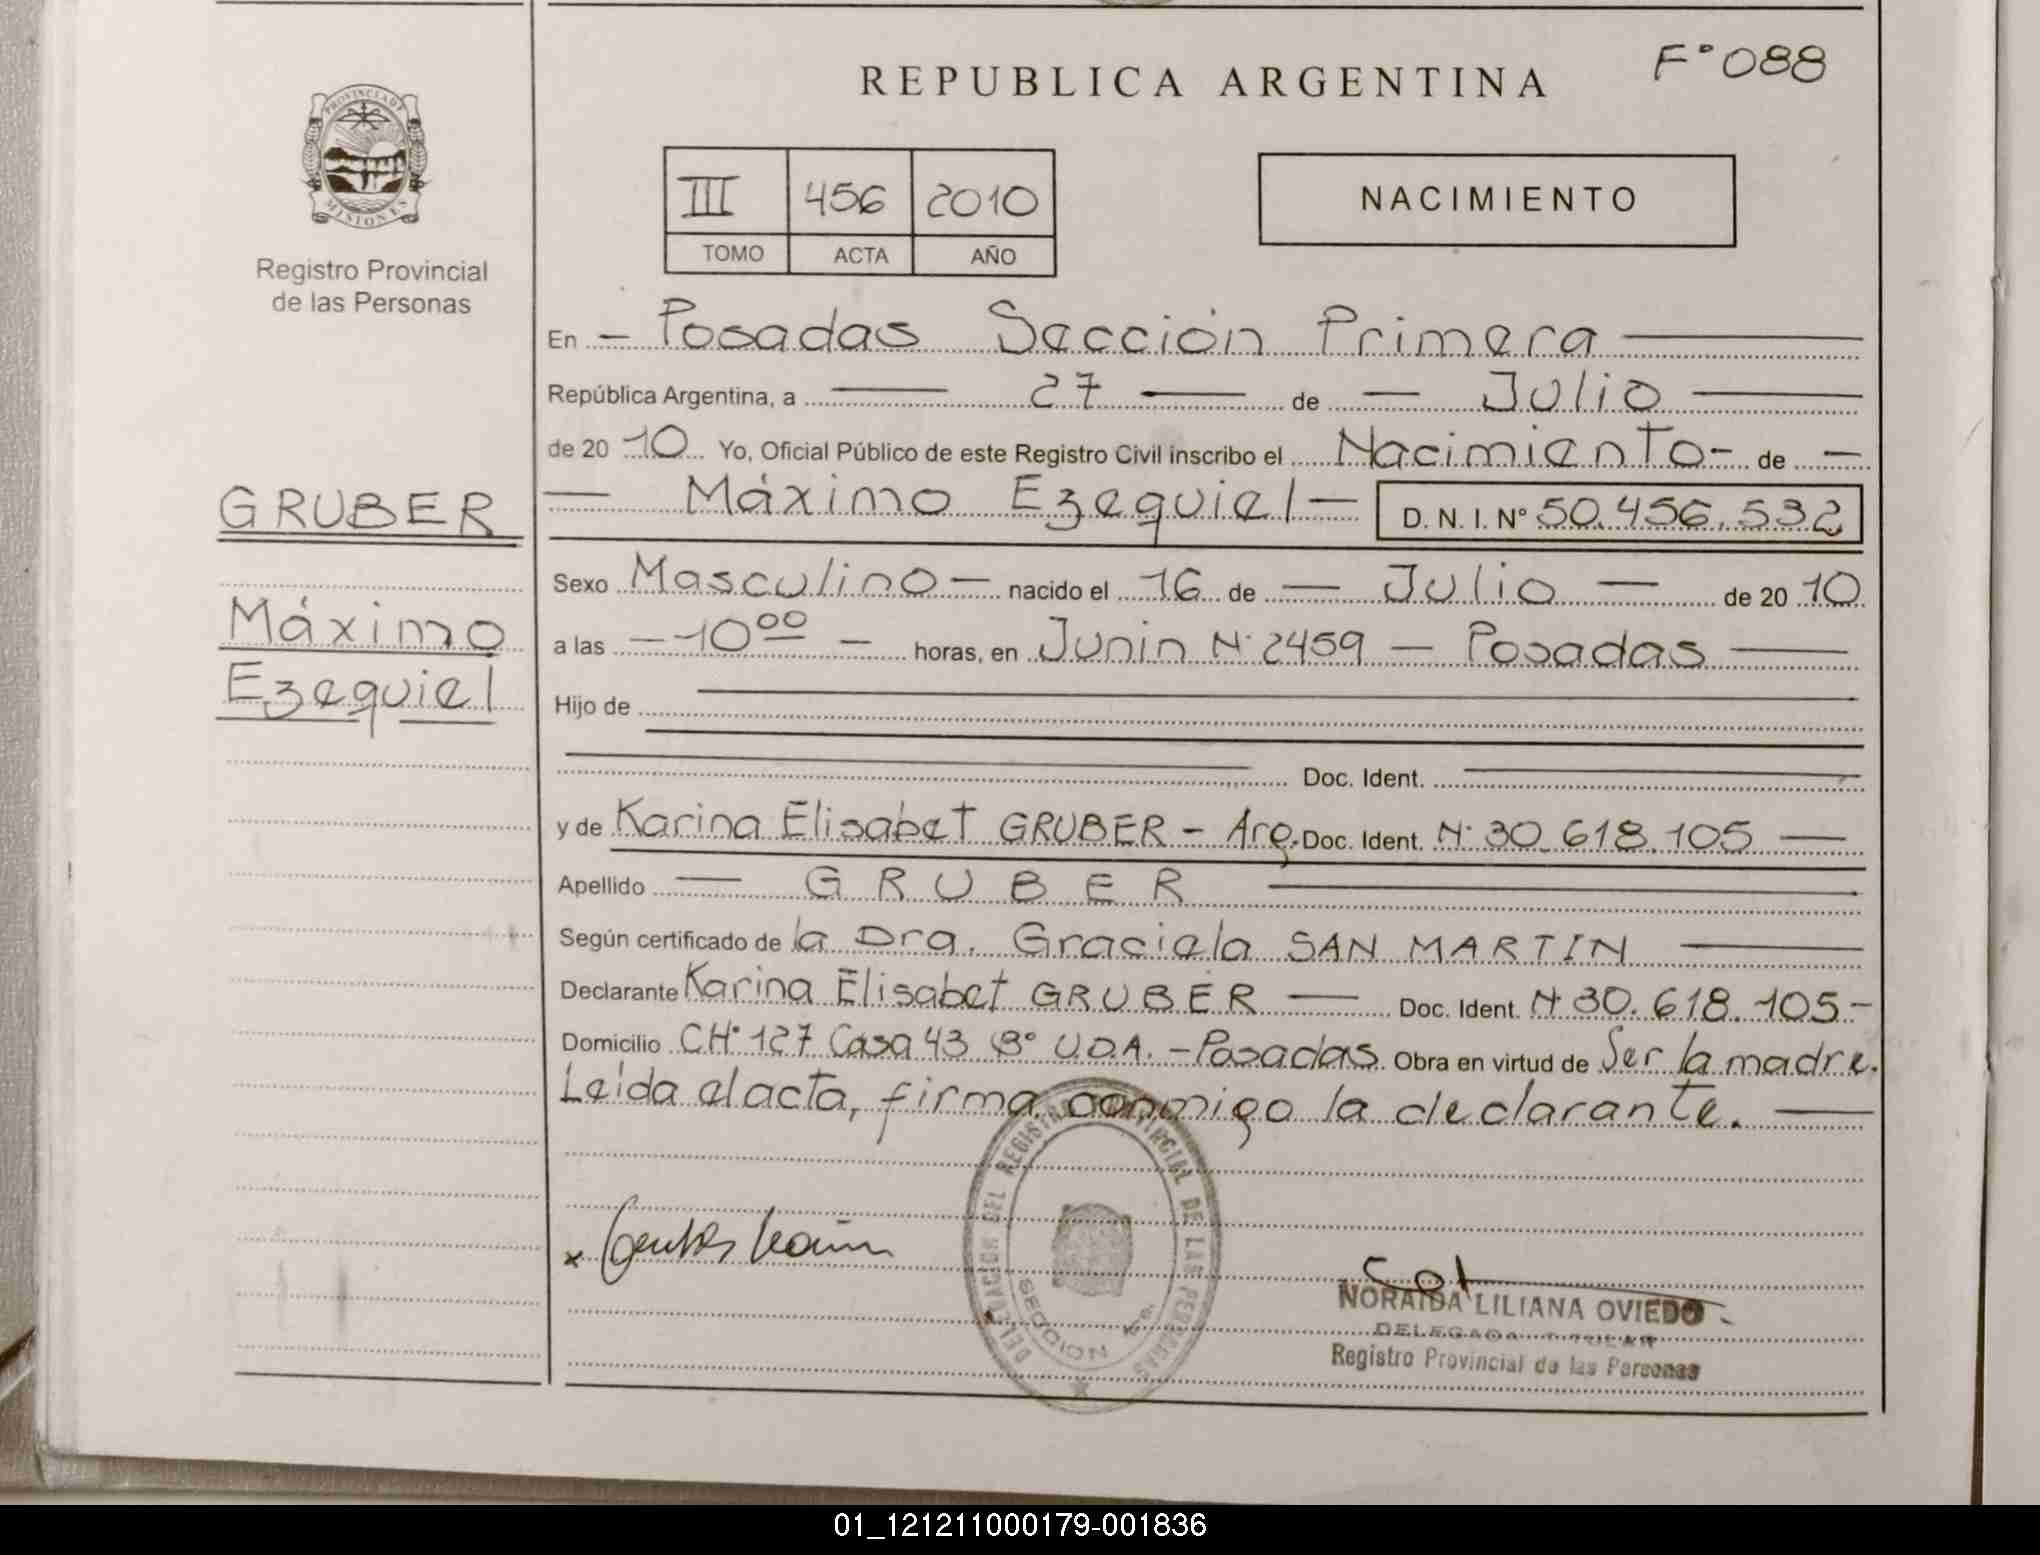 F° 088
REPUBLICA ARGENTINA
PROVINCIA DE MISIONES
Registro Provincial
de las Personas
III 456 2010
TOMO ACTA AÑO
NACIMIENTO
En - Posadas Sección Primera
República Argentina, a 27 de - Julio
de 20 10 Yo, Oficial Público de este Registro Civil inscribo el Nacimiento - de -
GRUBER
Máximo
Ezequiel
Máximo Ezequiel - D. N. I. N° 50.456.532
Sexo Masculino - nacido el 16 de - Julio - de 20 10
a las - 10 00 - horas, en Junin N° 2459 - Posadas
Hijo de
Doc. Ident.
y de Karina Elisabet GRUBER - Arg. Doc. Ident. N° 30.618.105
Apellido - GRUBER
Según certificado de la Dra. Graciela SAN MARTIN
Declarante Karina Elisabet GRUBER - Doc. Ident. N° 30.618.105 -
Domicilio CH° 127 Casa 43 B° U.D.A. - Posadas Obra en virtud de Ser la madre.
Leída el acta, firma conmigo la declarante.
DELEGACION DEL REGISTRO PROVINCIAL DE LAS PERSONAS
SECCION 1ra.
x Gruber Karina
NORAIDA LILIANA OVIEDO
DELEGADA TITULAR
Registro Provincial de las Personas
01_121211000179-001836